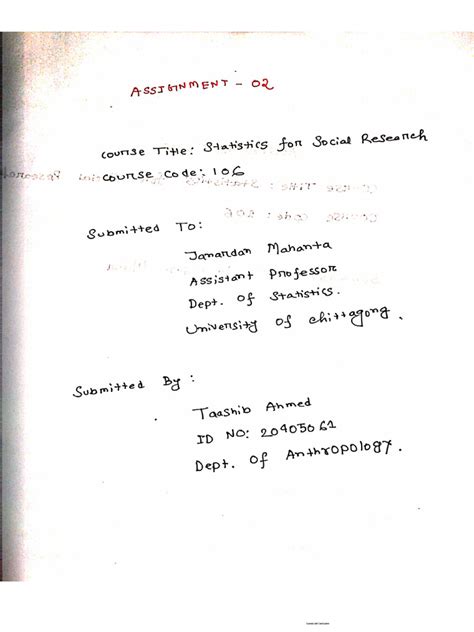 ASSIGNMENT - 02
Course Title: Statistics for Social Research
Course Code: 106
Submitted To:
Janardan Mahanta
Assistant Professor
Dept. of Statistics.
University of Chittagong.
Submitted By:
Taashib Ahmed
ID NO: 20405061
Dept. Of Anthropology.